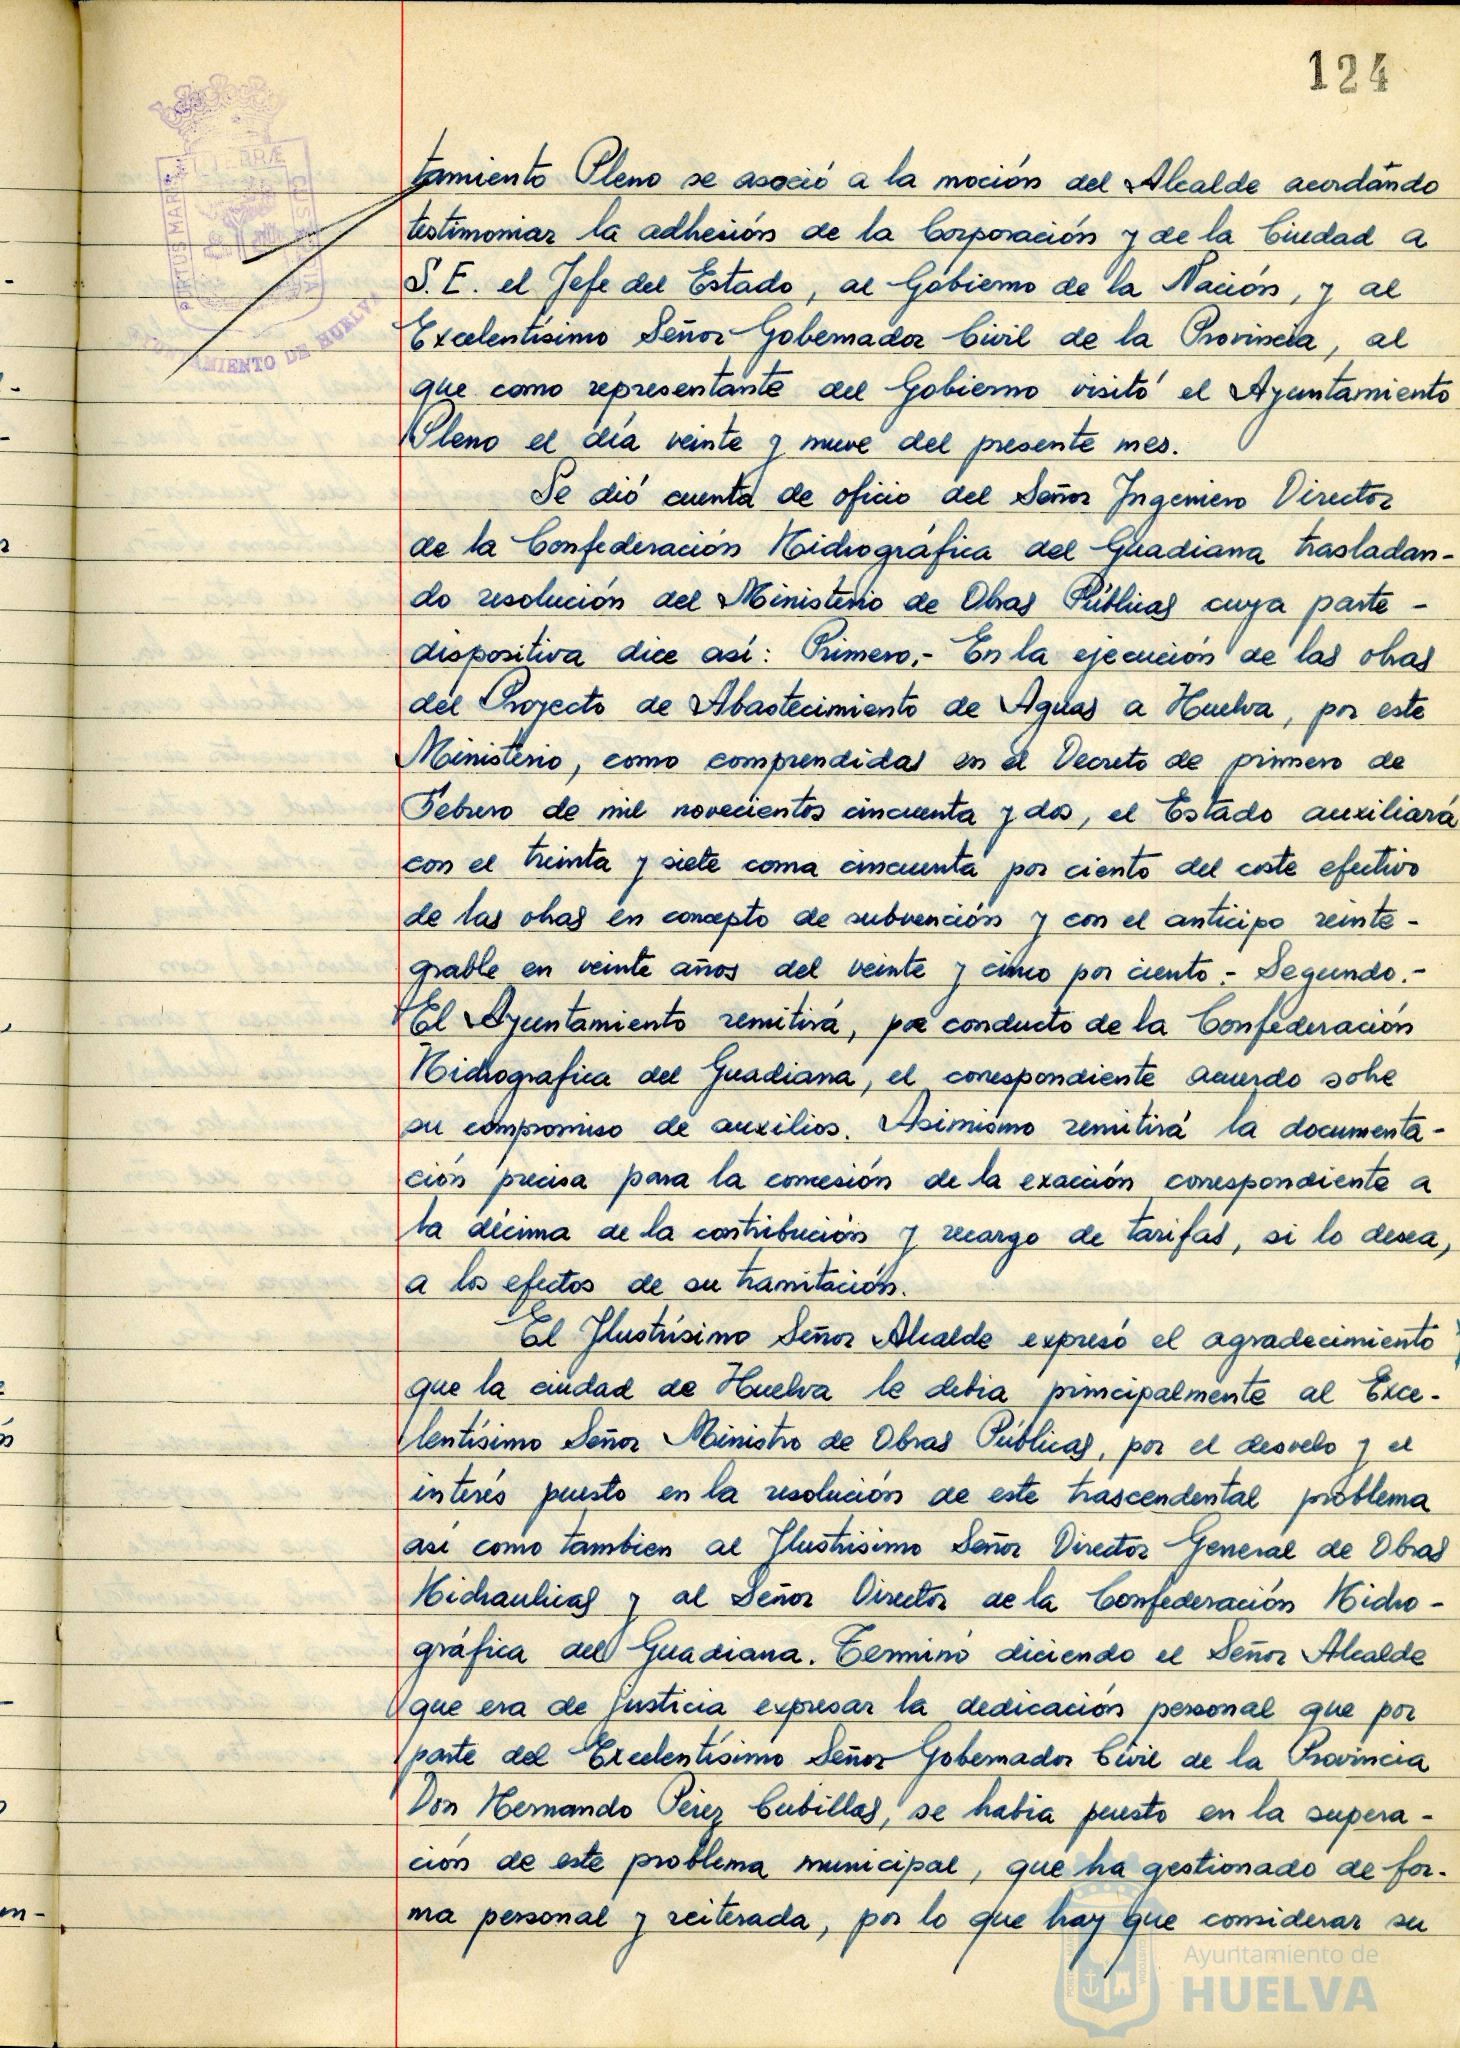 124
PORTUS MARIS ET TERRÆ CUSTODIA
AYUNTAMIENTO DE HUELVA
tamiento Pleno se asoció a la moción del Alcalde acordándo
testimoniar la adhesión de la Corporación y de la Ciudad a
S.E. el Jefe del Estado, al Gobierno de la Nación, y al
Excelentísimo Señor Gobernador Civil de la Provincia, al
que como representante del Gobierno visitó el Ayuntamiento
Pleno el día veinte y nueve del presente mes.
Se dió cuenta de oficio del Señor Ingeniero Director
de la Confederación Hidrográfica del Guadiana trasladan-
do resolución del Ministerio de Obras Públicas cuya parte -
dispositiva dice así: Primero.- En la ejecución de las obras
del Proyecto de Abastecimiento de Aguas a Huelva, por este
Ministerio, como comprendidas en el Decreto de primero de
Febrero de mil novecientos cincuenta y dos, el Estado auxiliará
con el treinta y siete coma cincuenta por ciento del coste efectivo
de las obras en concepto de subvención y con el anticipo reinte-
grable en veinte años del veinte y cinco por ciento.- Segundo.-
El Ayuntamiento remitirá, por conducto de la Confederación
Hidrografica del Guadiana, el correspondiente acuerdo sobre
su compromiso de auxilios. Asimismo remitirá la documenta-
ción precisa para la concesión de la exacción correspondiente a
la décima de la contribución y recargo de tarifas, si lo desea,
a los efectos de su tramitación.
El Ilustrísimo Señor Alcalde expresó el agradecimiento
que la ciudad de Huelva le debia principalmente al Exce-
lentísimo Señor Ministro de Obras Públicas, por el desvelo y el
interés puesto en la resolución de este trascendental problema
así como tambien al Ilustrísimo Señor Director General de Obras
Hidraulicas y al Señor Director de la Confederación Hidro-
gráfica del Guadiana. Terminó diciendo el Señor Alcalde
que era de justicia expresar la dedicación personal que por
parte del Excelentísimo Señor Gobernador Civil de la Provincia
Don Hernando Pérez Cubillas, se habia puesto en la supera-
ción de este problema municipal, que ha gestionado de for-
ma personal y reiterada, por lo que hay que considerar su
Ayuntamiento de
HUELVA